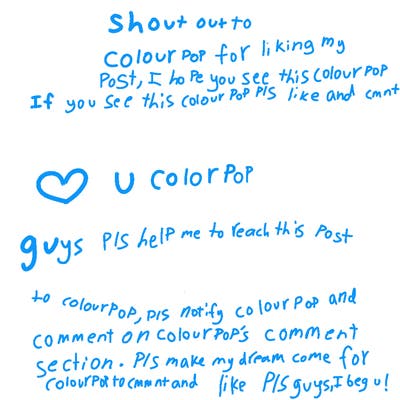 Shout out to
ColourPOP for liking my
POST, I hope you see this ColourPOP
If you see this colourPOP Pls like and cmnt
U ColorPOP
guys Pls help me to reach this Post
to colourPOP, pls notify colourPOP and
comment on colourPOP's comment
section. Pls make my dream come for
ColourPOP to cmmnt and like Pls guys, I beg u!